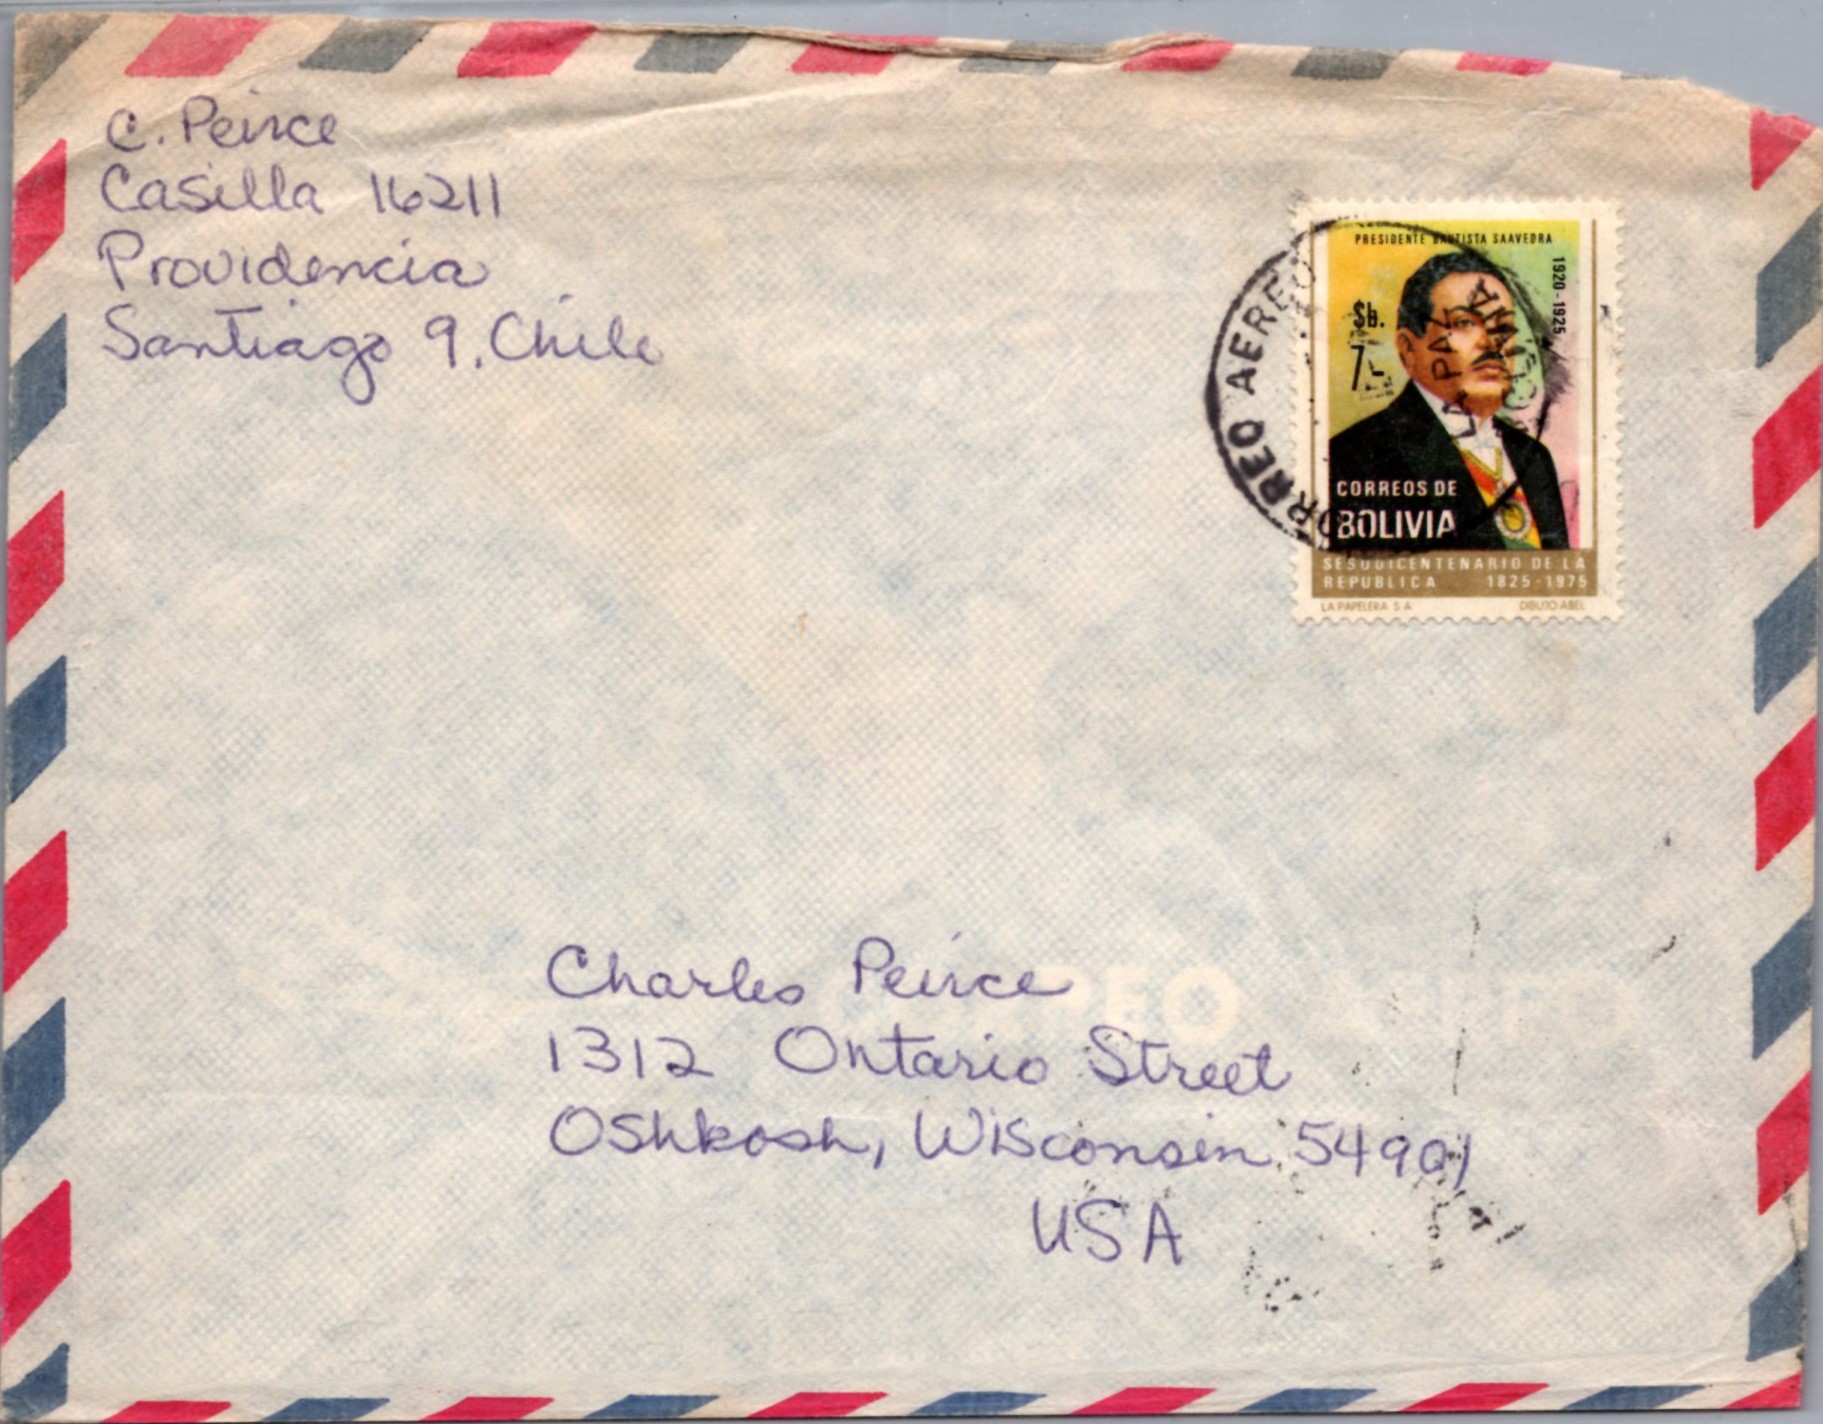 C. Peirce
Casilla 16211
Providencia
Santiago 9, Chile
CORREO AEREO
LA PAZ
PRESIDENTE BAUTISTA SAAVEDRA
1920-1925
$b.
7.-
CORREOS DE
BOLIVIA
SESQUICENTENARIO DE LA
REPUBLICA 1825-1975
LA PAPELERA S.A DIBUJO ABEL
Charles Peirce
1312 Ontario Street
Oshkosh, Wisconsin 54901
USA
CORREO AEREO